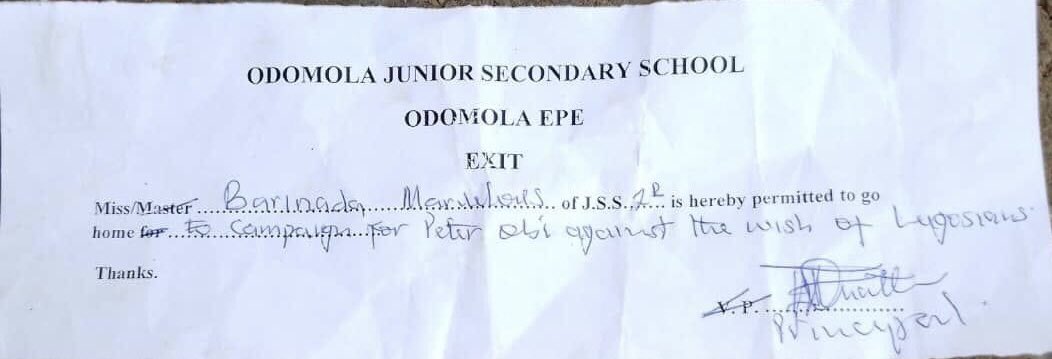 ODOMOLA JUNIOR SECONDARY SCHOOL
ODOMOLA EPE
EXIT
Miss/Master Barinada Marvelous of J.S.S. 2 is hereby permitted to go
home for to campaign for Peter Obi against the wish of Lagosians.
Thanks.
V.P.
Principal